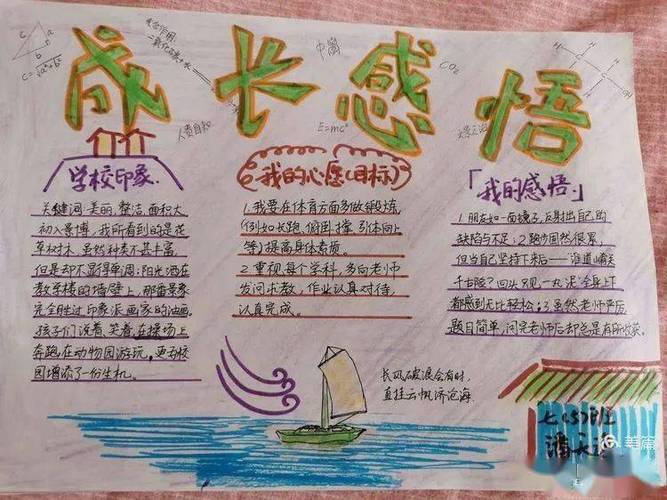 成长感悟
a
b
c
c=√a²+b²
光合作用
中
CO₂
H
H
H
OH
人贵自知
E=mc²
学校印象
关键词:美丽,整洁,面积大
初入景博,我所看到的是花
草树木,虽然种类不甚丰富,
但是却不显得单调;阳光洒在
教学楼的墙壁上,那番景象
完全胜过印象派画家的油画,
孩子们说着,笑着,在操场上
奔跑,在动物园游玩,更为校
园增添了一份生机。
我的心愿(目标)
1.我要在体育方面多做锻炼,
(例如长跑,俯卧撑,引体向上
等)提高身体素质。
2.重视每个学科,多向老师
发问求教,作业认真对待,
认真完成。
「我的感悟」
1.朋友如一面镜子,反射出自己的
缺陷与不足;2.跑步固然很累,
但当自己坚持下来后——谁道崤关
千古险?回头只见一丸泥,全身上下
都感到无比轻松;3.虽然老师严厉,
题目简单,问完老师后却总是有所收获。
长风破浪会有时,
直挂云帆济沧海
七(5)班
潘天
美篇